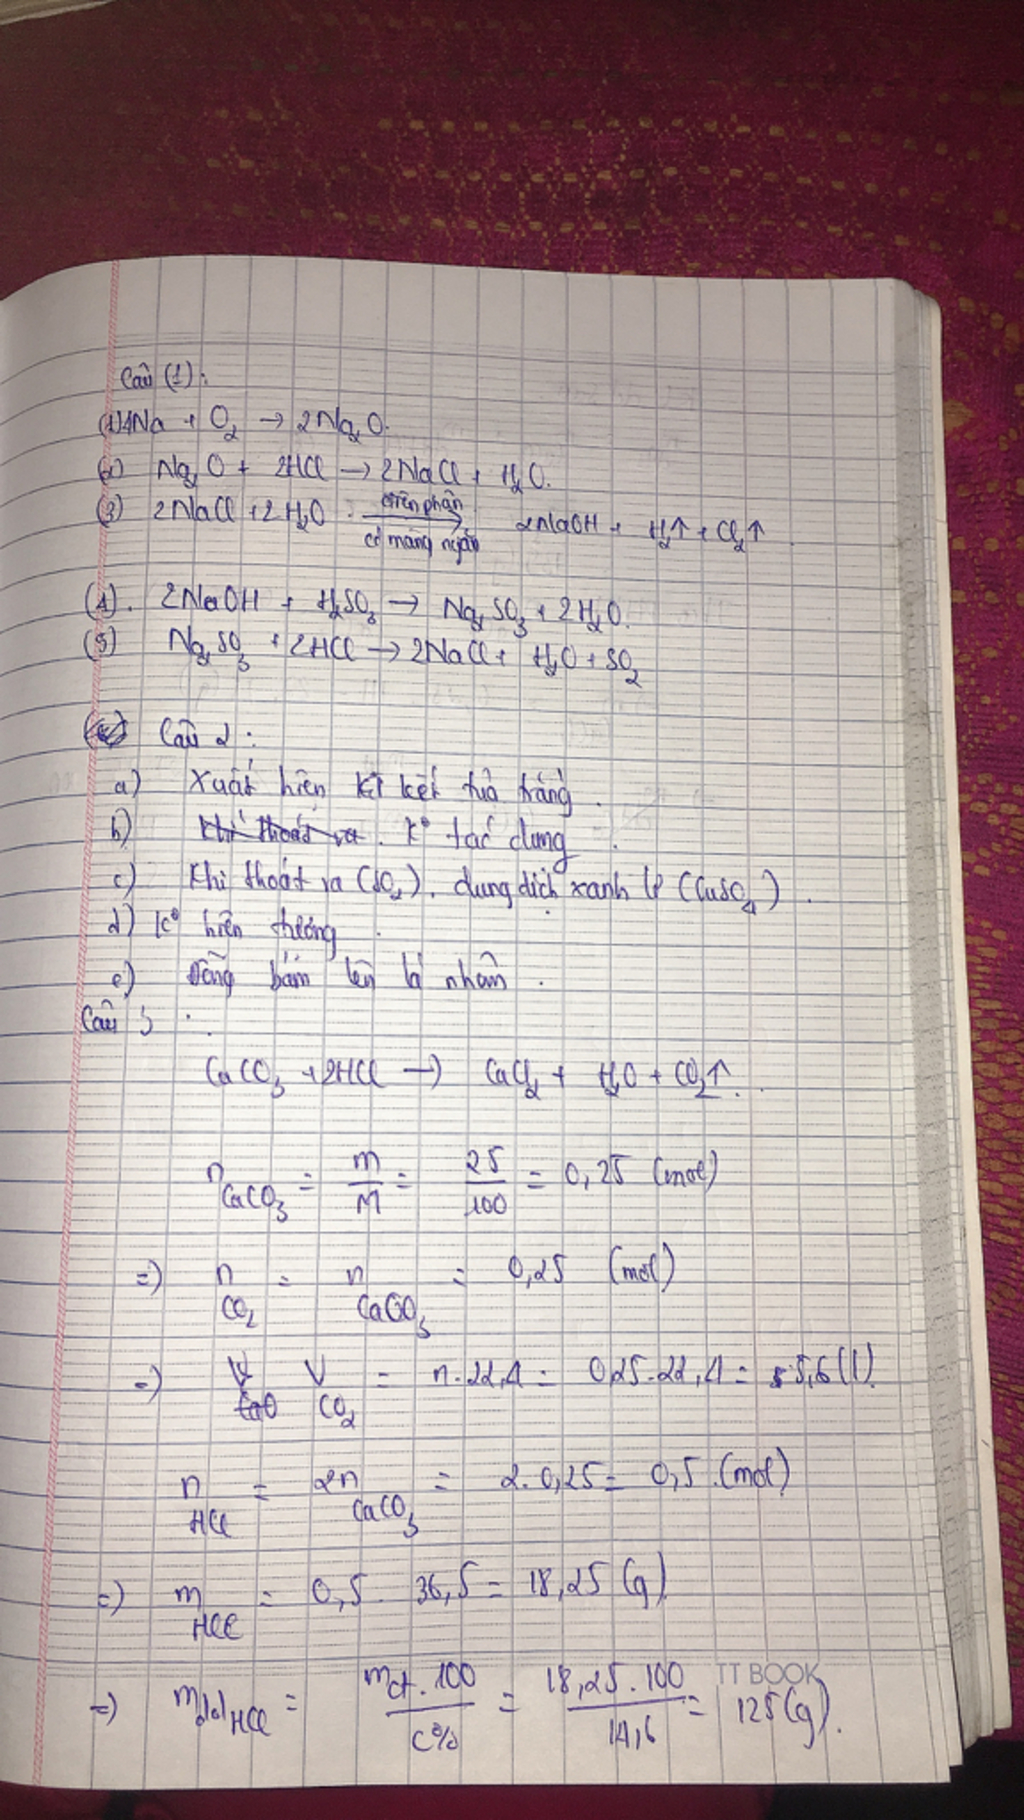 Câu (1):
(1) 4Na + O₂ → 2Na₂O.
(2) Na₂O + 2HCl → 2NaCl + H₂O.
(3) 2NaCl + 2H₂O điện phân → có màng ngăn 2NaOH + H₂↑ + Cl₂↑
(4). 2NaOH + H₂SO₃ → Na₂SO₃ + 2H₂O.
(5) Na₂SO₃ + 2HCl → 2NaCl + H₂O + SO₂
Câu 2:
a) Xuất hiện kết tủa trắng.
b) k° tác dụng.
c) Khí thoát ra (SO₂), dung dịch xanh (CuSO₄).
d) k° hiện tượng.
e) Đồng bám lên lá nhôm.
Câu 3:
CaCO₃ + 2HCl → CaCl₂ + H₂O + CO₂↑.
n CaCO₃ = m/M = 25/100 = 0,25 (mol)
=> n CO₂ = n CaCO₃ = 0,25 (mol)
=> V CO₂ = n.22,4 = 0,25.22,4 = 5,6 (l).
n HCl = 2n CaCO₃ = 2.0,25 = 0,5 (mol)
=> m HCl = 0,5 . 36,5 = 18,25 (g)
=> mdd HCl = mct.100/C% = 18,25.100/14,6 = 125 (g).
TT BOOK